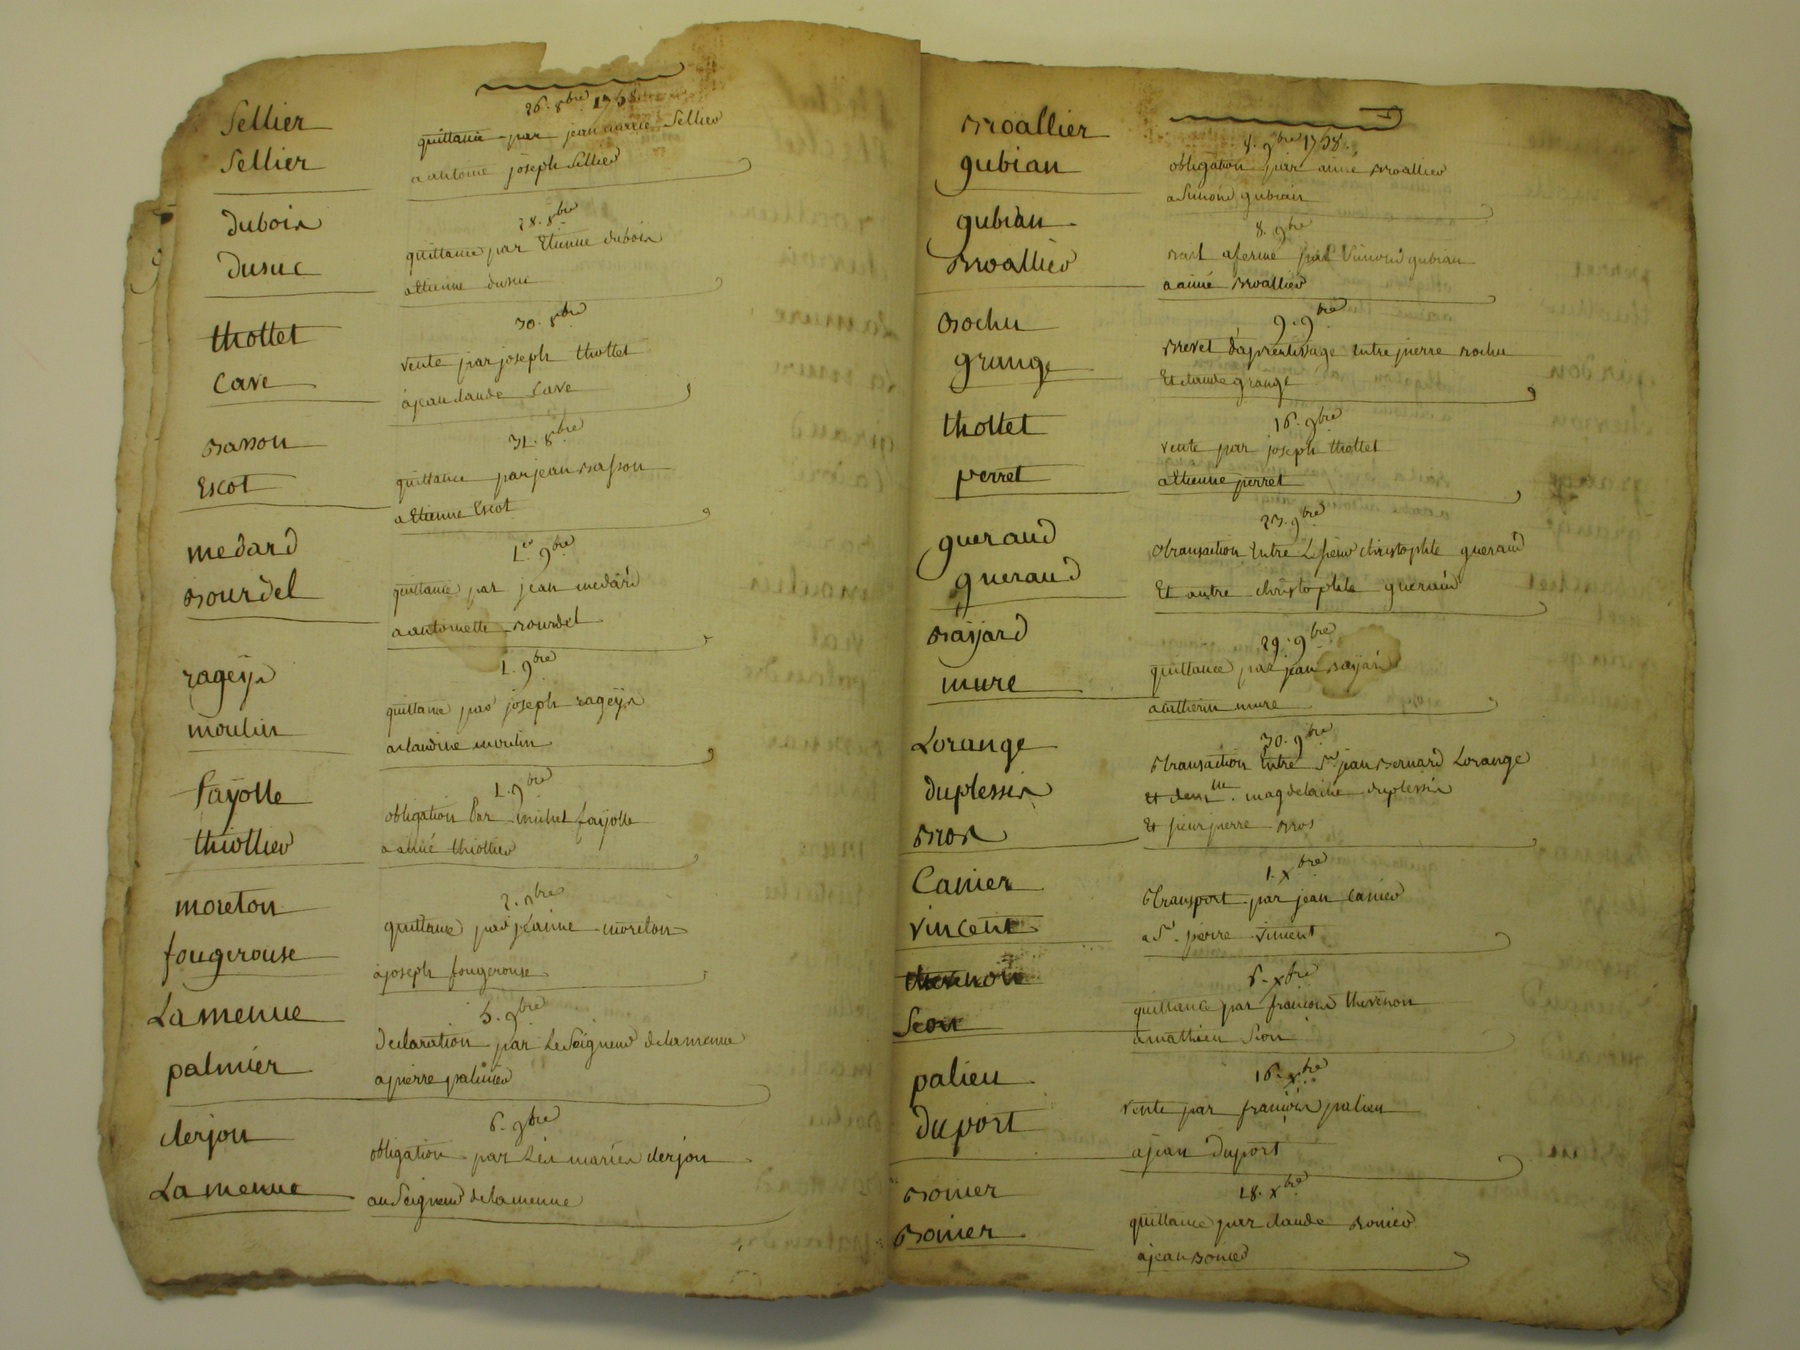 Sellier
Sellier
26. 8bre 1758
quittance par jean marie Sellier
a antoine joseph Sellier
dubois
dusuc
28. 8bre
quittance par Etienne dubois
a Etienne dusuc
thollet
Cave
30. 8bre
vente par joseph thollet
a jean claude Cave
Basson
Escot
31. 8bre
quittance par jean Basson
a Etienne Escot
medard
Bourdel
1er 9bre
quittance par jean medard
a antoinette Bourdel
rageÿs
moulin
1. 9bre
quittance par joseph rageÿs
a claudine moulin
faÿolle
thiollier
1. 9bre
obligation Par michel faÿolle
a aimé thiollier
moreton
fougerouse
2. 9bre
quittance par moreton
a joseph fougerouse
Lamenue
palmier
5. 9bre
declaration par Le Seigneur de lamenue
a pierre palmier
clerjon
Lamenue
6. 9bre
obligation par Les mariés clerjon
au Seigneur de lamenue
Broallier
gubian
8. 9bre 1758.
obligation par aimé Broallier
a Simond gubian
gubian
Broallier
8. 9bre
Bail a ferme par Simond gubian
a aimé Broallier
Bochu
grange
9. 9bre
Brevet d'aprentissage entre pierre Bochu
Et claude grange
thollet
perret
16. 9bre
vente par joseph thollet
a Etienne perret
gueraud
gueraud
23. 9bre
transaction Entre Le sieur christophle gueraud
Et autre christophle gueraud
Baÿard
mure
29. 9bre
quittance par jean Baÿard
a catherin mure
Lorange
duplessis
Bros
30. 9bre
transaction Entre Sr jean Bernard Lorange
et demlle magdelaine duplessis
Et sieur pierre Bros
Canier
vincent
1. xbre
transport par jean Canier
a Sr. pierre vincent
thevenon
Seon
6. xbre
quittance par francois thevenon
a mathieu Seon
palieu
duport
16. xbre
vente par francois palieu
a jean duport
Bonier
Bonier
18. xbre
quittance par claude Bonier
a jean Bonier